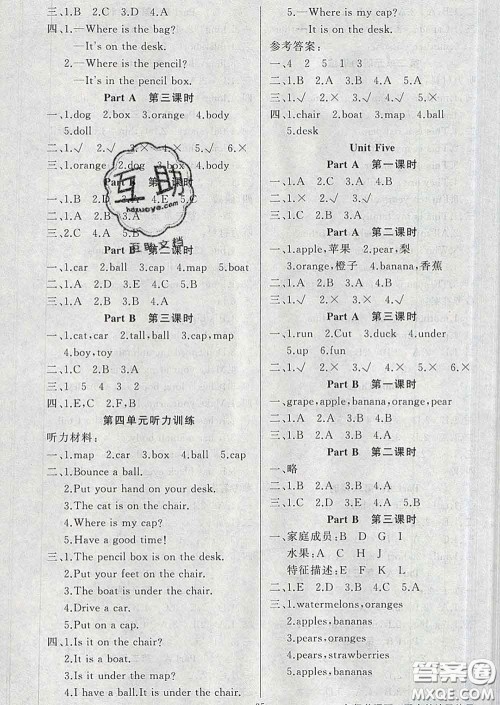 三、1.B　2.A　3.B　4.A
四、1.—Where is the bag?
—It's on the desk.
2.—Where is the pencil?
—It's in the pencil box.
Part A　第三课时
一、1.dog　2.box　3.orange　4.body
5.doll
二、1.√　2.√　3.×　4.×　5.√　6.×
三、1.orange　2.dog　3.box　4.body
Part B　第一课时
一、1.B　2.D　3.A　4.E　5.C
二、1.B　2.B　3.A
三、1.C　2.B　3.A　4.D
Part B　第二课时
一、1.car　2.ball　3.cap　4.map　5.boat
二、1.A　2.B　3.B　4.A
Part B　第三课时
一、1.cat,car　2.tall,ball　3.cap,map
4.boy,toy
二、1.C　2.A　3.C　4.B
三、1　5　4　3　2
四、1.E,C　2.F,B
第四单元听力训练
听力材料：
一、1.map　2.car　3.box　4.ball　5.cap
二、1.Bounce a ball.
2.Put your hand on your desk.
3.The cat is on the chair.
4.Where is my cap?
5.Have a good time!
三、1.The pencil box is on the desk.
2.Put your feet on the chair.
3.The boat is under the chair.
4.Drive a car.
5.Put on a cap.
四、1.Is it on the chair?
2.It is a boat.
3.Is it under the map?
4.I have a ball.It is under the chair.
5.—Where is my cap?
—It is on the desk.
参考答案：
一、4　2　5　1　3
二、1.B　2.A　3.B　4.A　5.A
三、1.√　2.×　3.√　4.×　5.√
四、1.chair　2.boat　3.map　4.ball
5.desk
Unit Five
Part A　第一课时
一、1.A　2.C　3.D　4.B
二、1.B　2.C　3.A
三、1.B　2.A　3.B　4.A
Part A　第二课时
一、1.apple,苹果　2.pear,梨
3.orange,橙子　4.banana,香蕉
二、1.A　2.D　3.B　4.C
三、1.√　2.×　3.×　4.√
Part A　第三课时
一、1.run　2.Cut　3.duck　4.under
5.up　6.fun
二、1.√　2.×　3.√　4.×　5.×　6.×
三、1.C　2.A　3.B　4.A
Part B　第一课时
一、grape,apple,banana,orange,pear
二、1.B　2.A　3.A　4.B
三、1.D　2.A　3.C　4.B
Part B　第二课时
一、略
二、1.B　2.A　3.A　4.A
三、1.C　2.A　3.D　4.B
Part B　第三课时
一、家庭成员：B　D　G　I
水果：A　C　H　J
特征描述：E　F　K　L
二、1.C　2.E　3.A　4.B　5.D
三、1.watermelons,oranges
2.apples,bananas
3.pears,oranges
4.pears,strawberries
5.apples,bananas
互助
hdzuoye.com
互助文档
答案圈
MXQE.COM